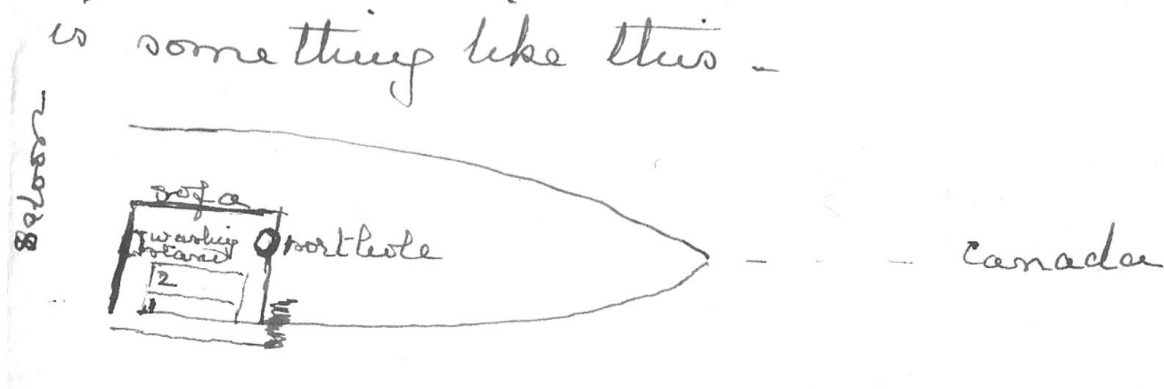 is something like this -
Saloon
sofa
washing
stand
porthole
2
1
Canada